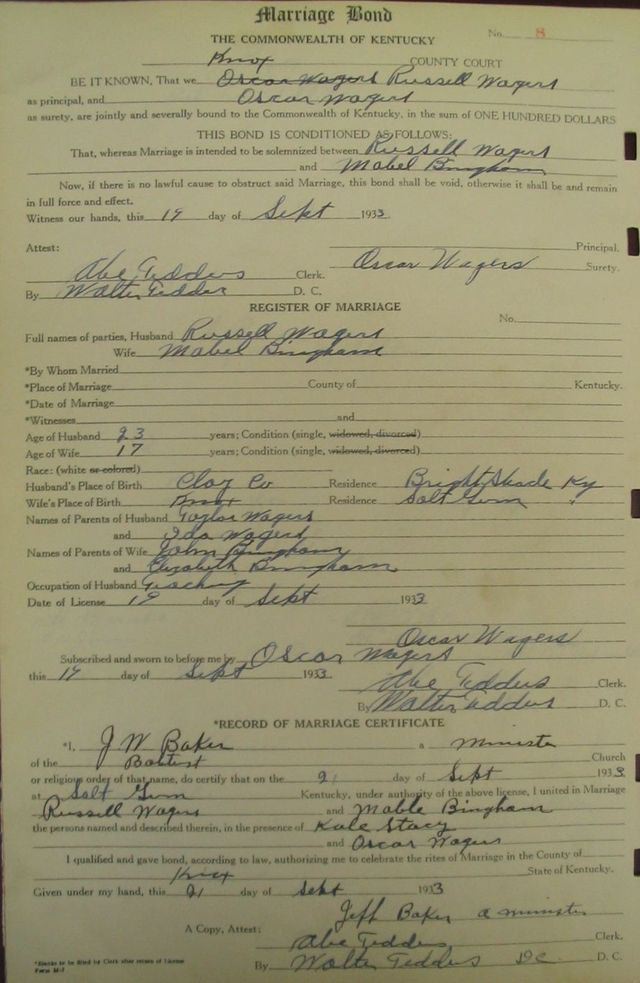 Marriage Bond
No. 8
THE COMMONWEALTH OF KENTUCKY
Knox COUNTY COURT
BE IT KNOWN, That we Oscar Wagers Russell Wagers
as principal, and Oscar Wagers
as surety, are jointly and severally bound to the Commonwealth of Kentucky, in the sum of ONE HUNDRED DOLLARS
THIS BOND IS CONDITIONED AS FOLLOWS:
That, whereas Marriage is intended to be solemnized between Russell Wagers
and Mabel Bingham
Now, if there is no lawful cause to obstruct said Marriage, this bond shall be void, otherwise it shall be and remain
in full force and effect.
Witness our hands, this 19 day of Sept 1933
Principal.
Attest:
Oscar Wagers Surety.
Abe Tedders Clerk.
By Walter Tedder D. C.
REGISTER OF MARRIAGE
No.
Full names of parties, Husband Russell Wagers
Wife Mabel Bingham
*By Whom Married
*Place of Marriage County of Kentucky.
*Date of Marriage
*Witnesses and
Age of Husband 23 years; Condition (single, widowed, divorced)
Age of Wife 17 years; Condition (single, widowed, divorced)
Race: (white or colored)
Husband's Place of Birth Clay Co Residence Bright Shade Ky
Wife's Place of Birth Knox Residence Salt Gum "
Names of Parents of Husband Taylor Wagers
and Ida Wagers
Names of Parents of Wife John Bingham
and Elizabeth Bingham
Occupation of Husband Teaching
Date of License 19 day of Sept 1933
Oscar Wagers
Subscribed and sworn to before me by Oscar Wagers
this 19 day of Sept 1933
Abe Tedders Clerk.
By Walter Tedders D. C.
*RECORD OF MARRIAGE CERTIFICATE
*I, J W Baker a Minister
of the Baptist Church
or religious order of that name, do certify that on the 21 day of Sept 1933
at Salt Gum Kentucky, under authority of the above license, I united in Marriage
Russell Wagers and Mable Bingham
the persons named and described therein, in the presence of Kale Stacy
and Oscar Wagers
I qualified and gave bond, according to law, authorizing me to celebrate the rites of Marriage in the County of
Knox State of Kentucky.
Given under my hand, this 21 day of Sept 1933
Jeff Baker a minister
A Copy, Attest:
Abe Tedders Clerk.
By Walter Tedders DC D. C.
*Blanks to be filled by Clerk after return of License
Form M-1